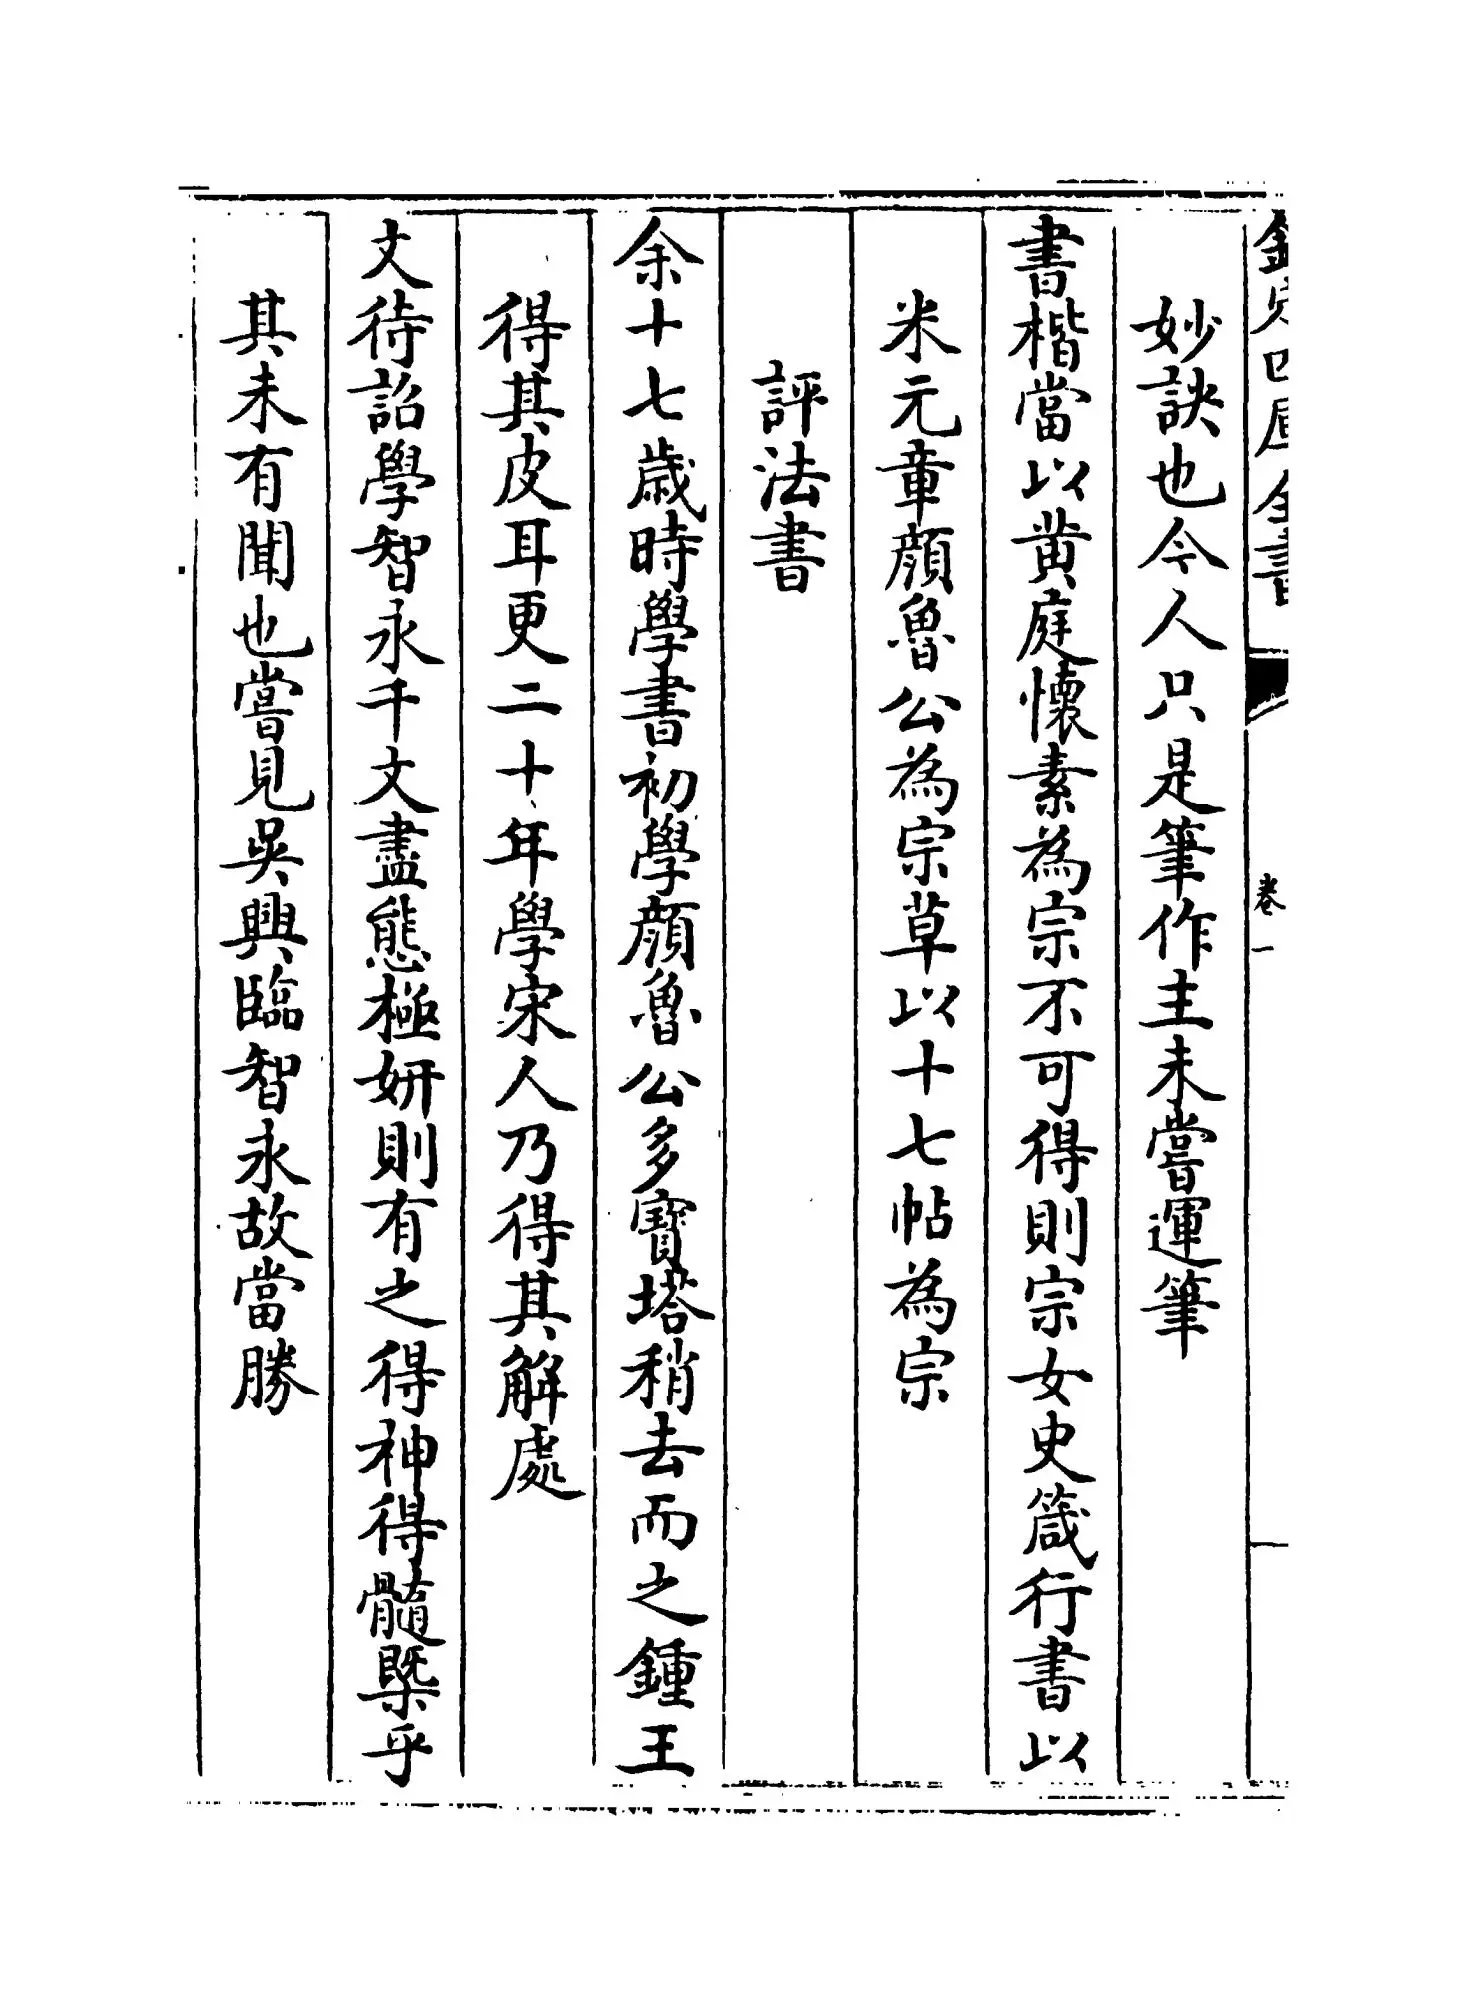 欽定四庫全書
卷一
妙訣也今人只是筆作主未嘗運筆
書楷當以黄庭懷素為宗不可得則宗女史箴行書以
米元章顔魯公為宗草以十七帖為宗
評法書
余十七歳時學書初學顔魯公多寶塔稍去而之鍾王
得其皮耳更二十年學宋人乃得其解處
文待詔學智永千文盡態極妍則有之得神得髓槩乎
其未有聞也嘗見吳興臨智永故當勝